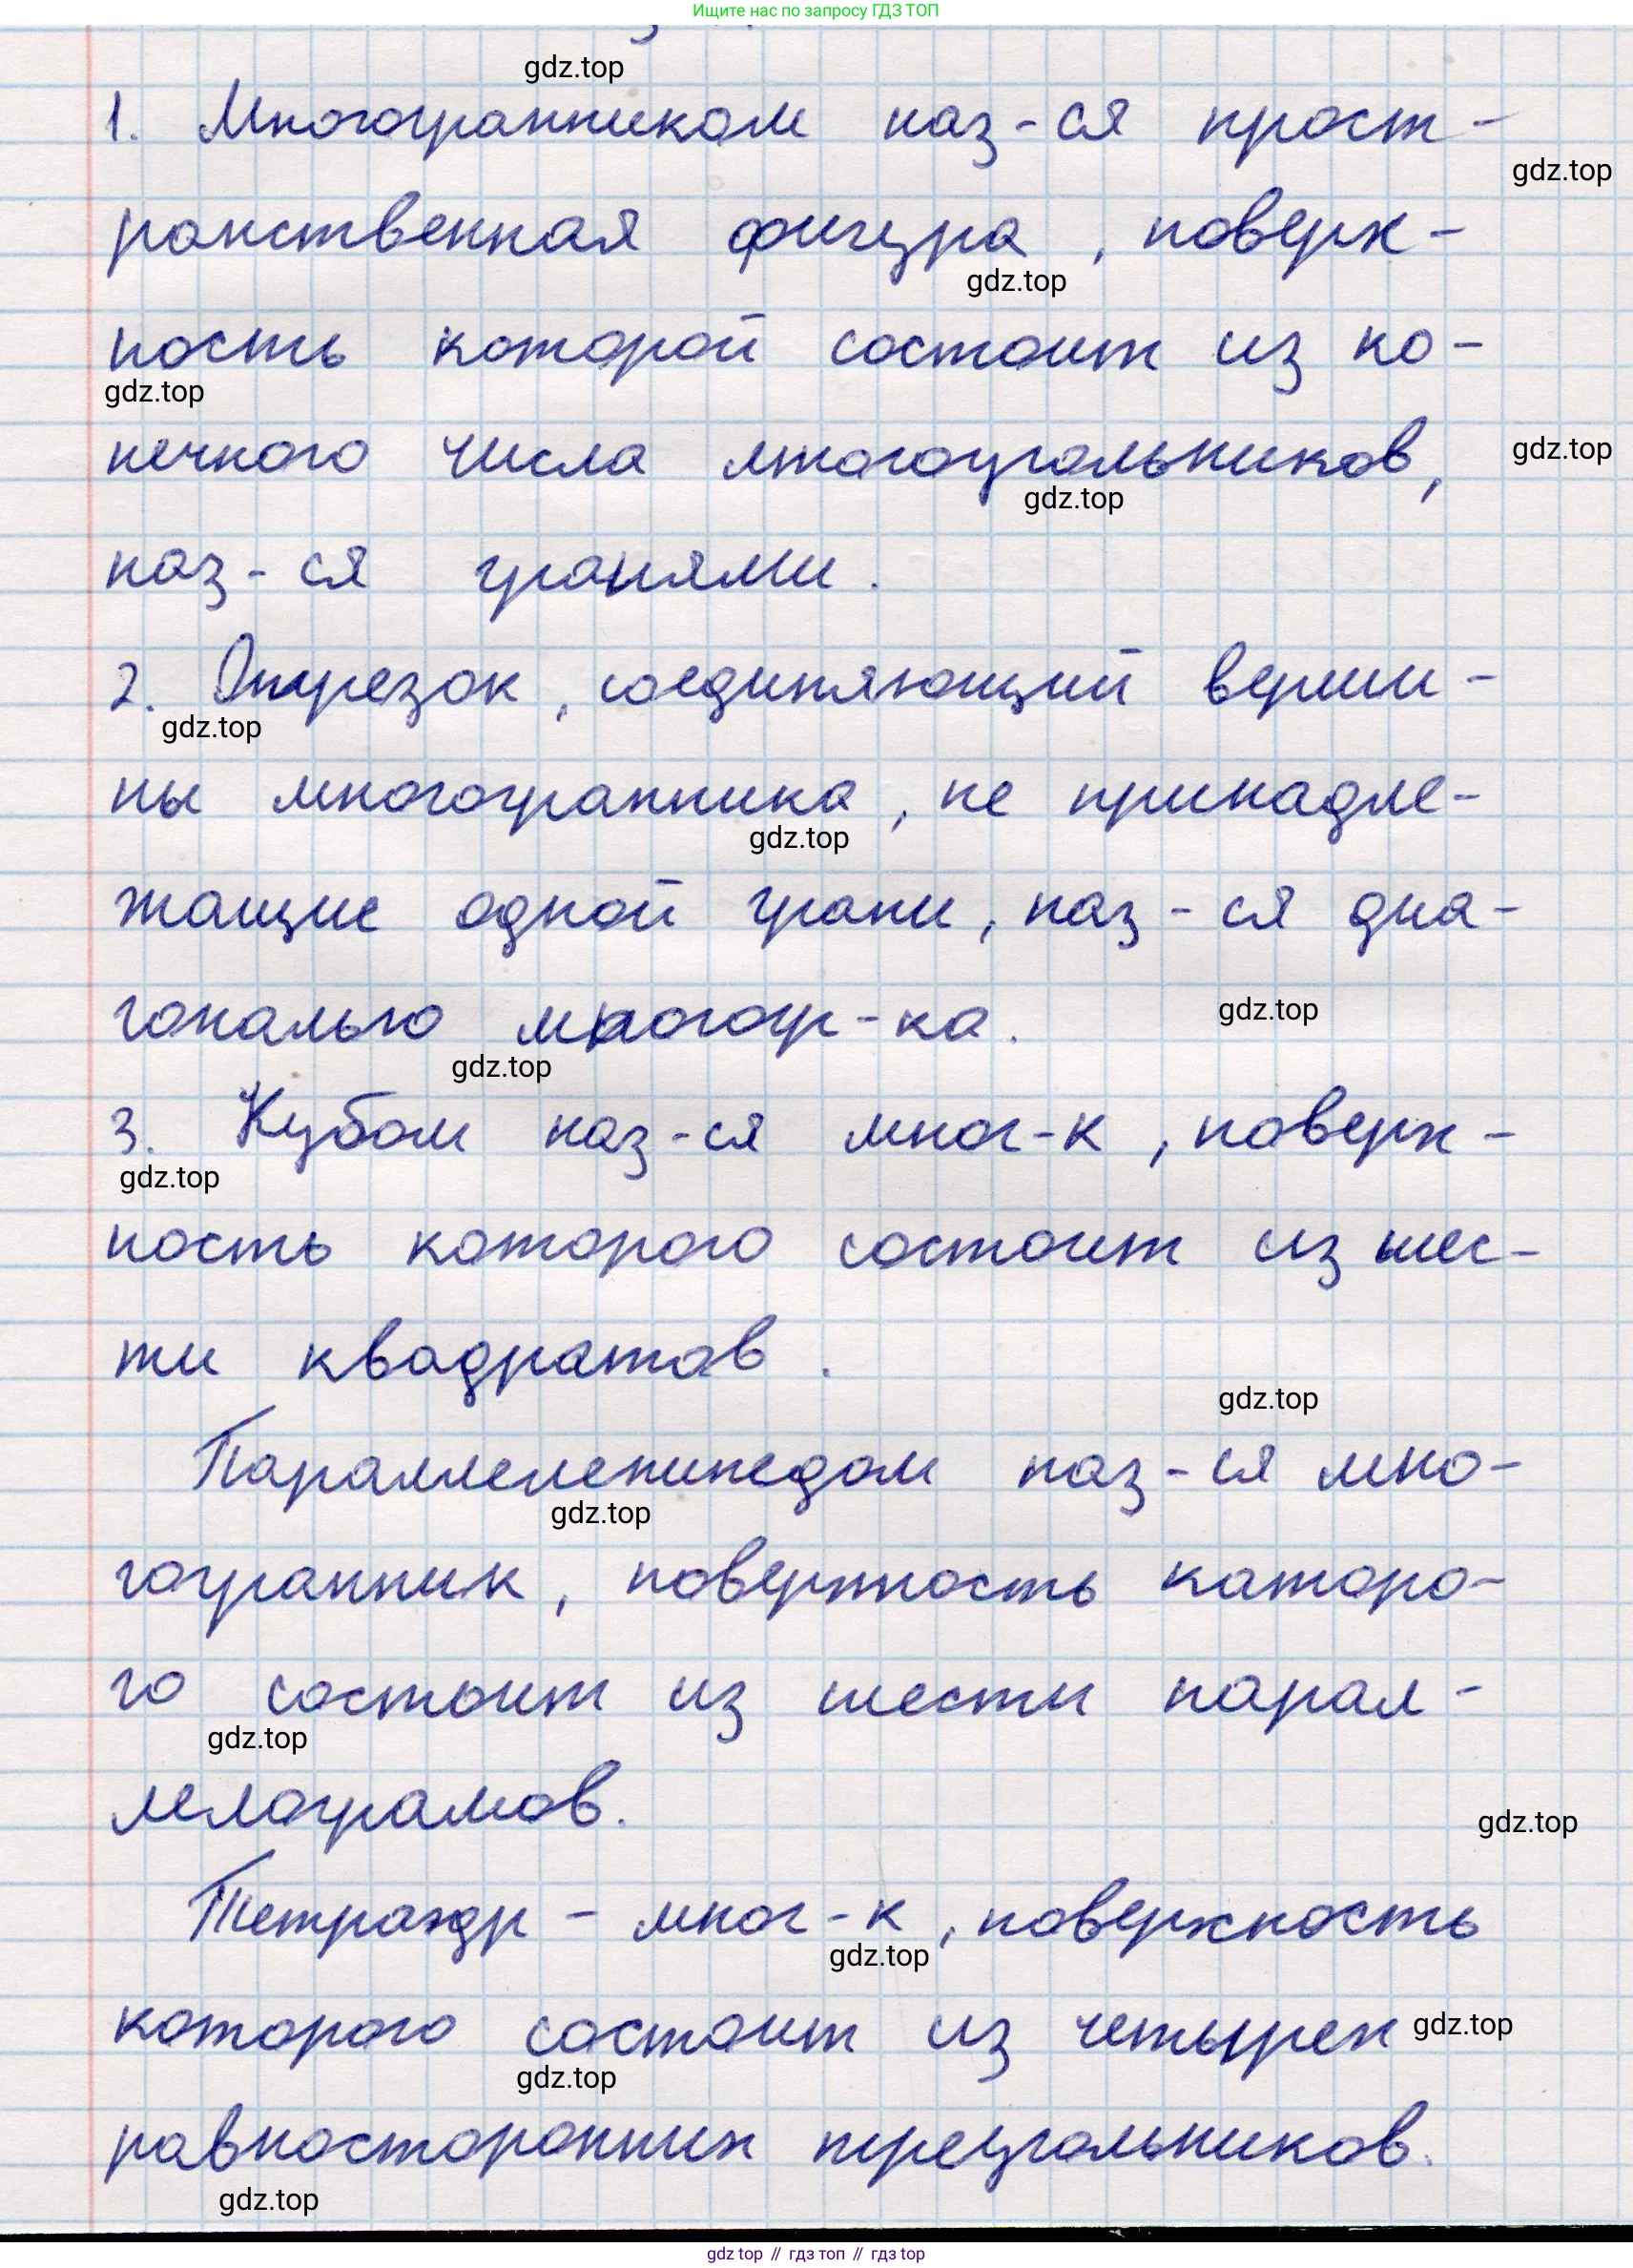 Ищите нас по запросу ГДЗ ТОП
gdz.top
1. Многогранником наз-ся прост-
gdz.top
ранственная фигура, поверх-
gdz.top
ность которой состоит из ко-
gdz.top
нечного числа многоугольников,
gdz.top
gdz.top
наз-ся гранями.
2. Отрезок, соединяющий верши-
gdz.top
ны многогранника, не принадле-
gdz.top
жащие одной грани, наз-ся диа-
гональю многогр-ка.
gdz.top
gdz.top
3. Кубом наз-ся мног-к, поверх-
gdz.top
ность которого состоит из шес-
ти квадратов.
gdz.top
Параллелепипедом наз-ся мно-
gdz.top
гогранник, поверхность которо-
го состоит из шести парал-
gdz.top
лелограмов.
gdz.top
Тетраэдр - мног-к, поверхность
gdz.top
которого состоит из четырех
gdz.top
gdz.top
равносторонних треугольников.
gdz.top
gdz top // гдз топ // гдз top